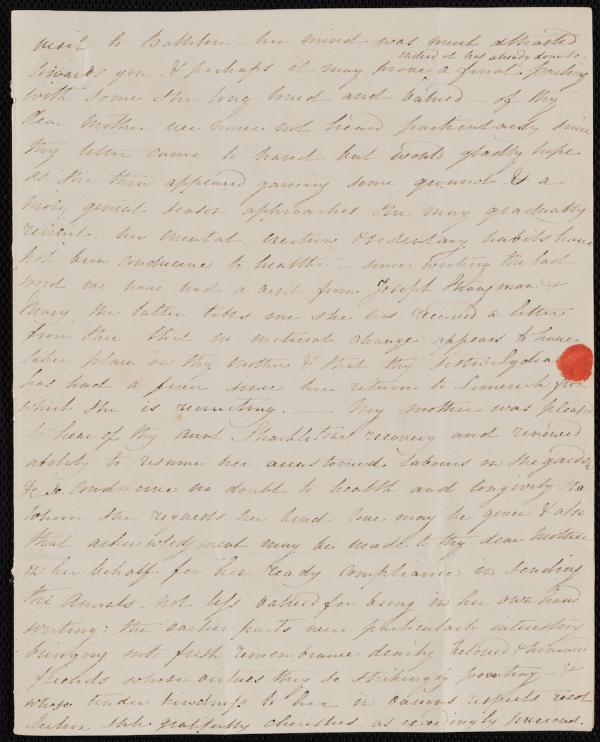 visit to Ballitore her mind was much attracted
indeed it has already done so -
towards you & perhaps it may prove a final parting
with some she long lived and valued - of thy
dear Mother we have not heard particularly since
thy letter came to hand but would gladly hope
as she then appeared gaining some ground & a
more genial season approaches she may gradually
recruit, her mental exertion & sedentary habits have
not been conducive to health - since writing the last
word we have had a visit from Joseph Strangman &
Mary, the latter tells me she has received a letter
from thee - that no material change appears to have
taken place in thy Mother & that thy sister Lydia
has had a fever since her return to Limerick from
which she is recruiting. - My mother was pleased
to hear of thy Aunt Shackleton's recovery and renewed
ability to resume her accustomed labours in the garden
& so conducive no doubt to health and longevity, to
whom she requests her kind love may be given & also
that acknowledgment may be made to thy dear Mother
on her behalf, for her ready compliance in sending
the Annals - not less valued for being in her own hand
writing: the earlier parts were particularly interesting
bringing into fresh remembrance dearly beloved & honoured
friends whose virtues they so strikingly pourtray - &
whose tender kindness to her in various respects recol
lection still gratefully cherishes, as exceedingly precious.